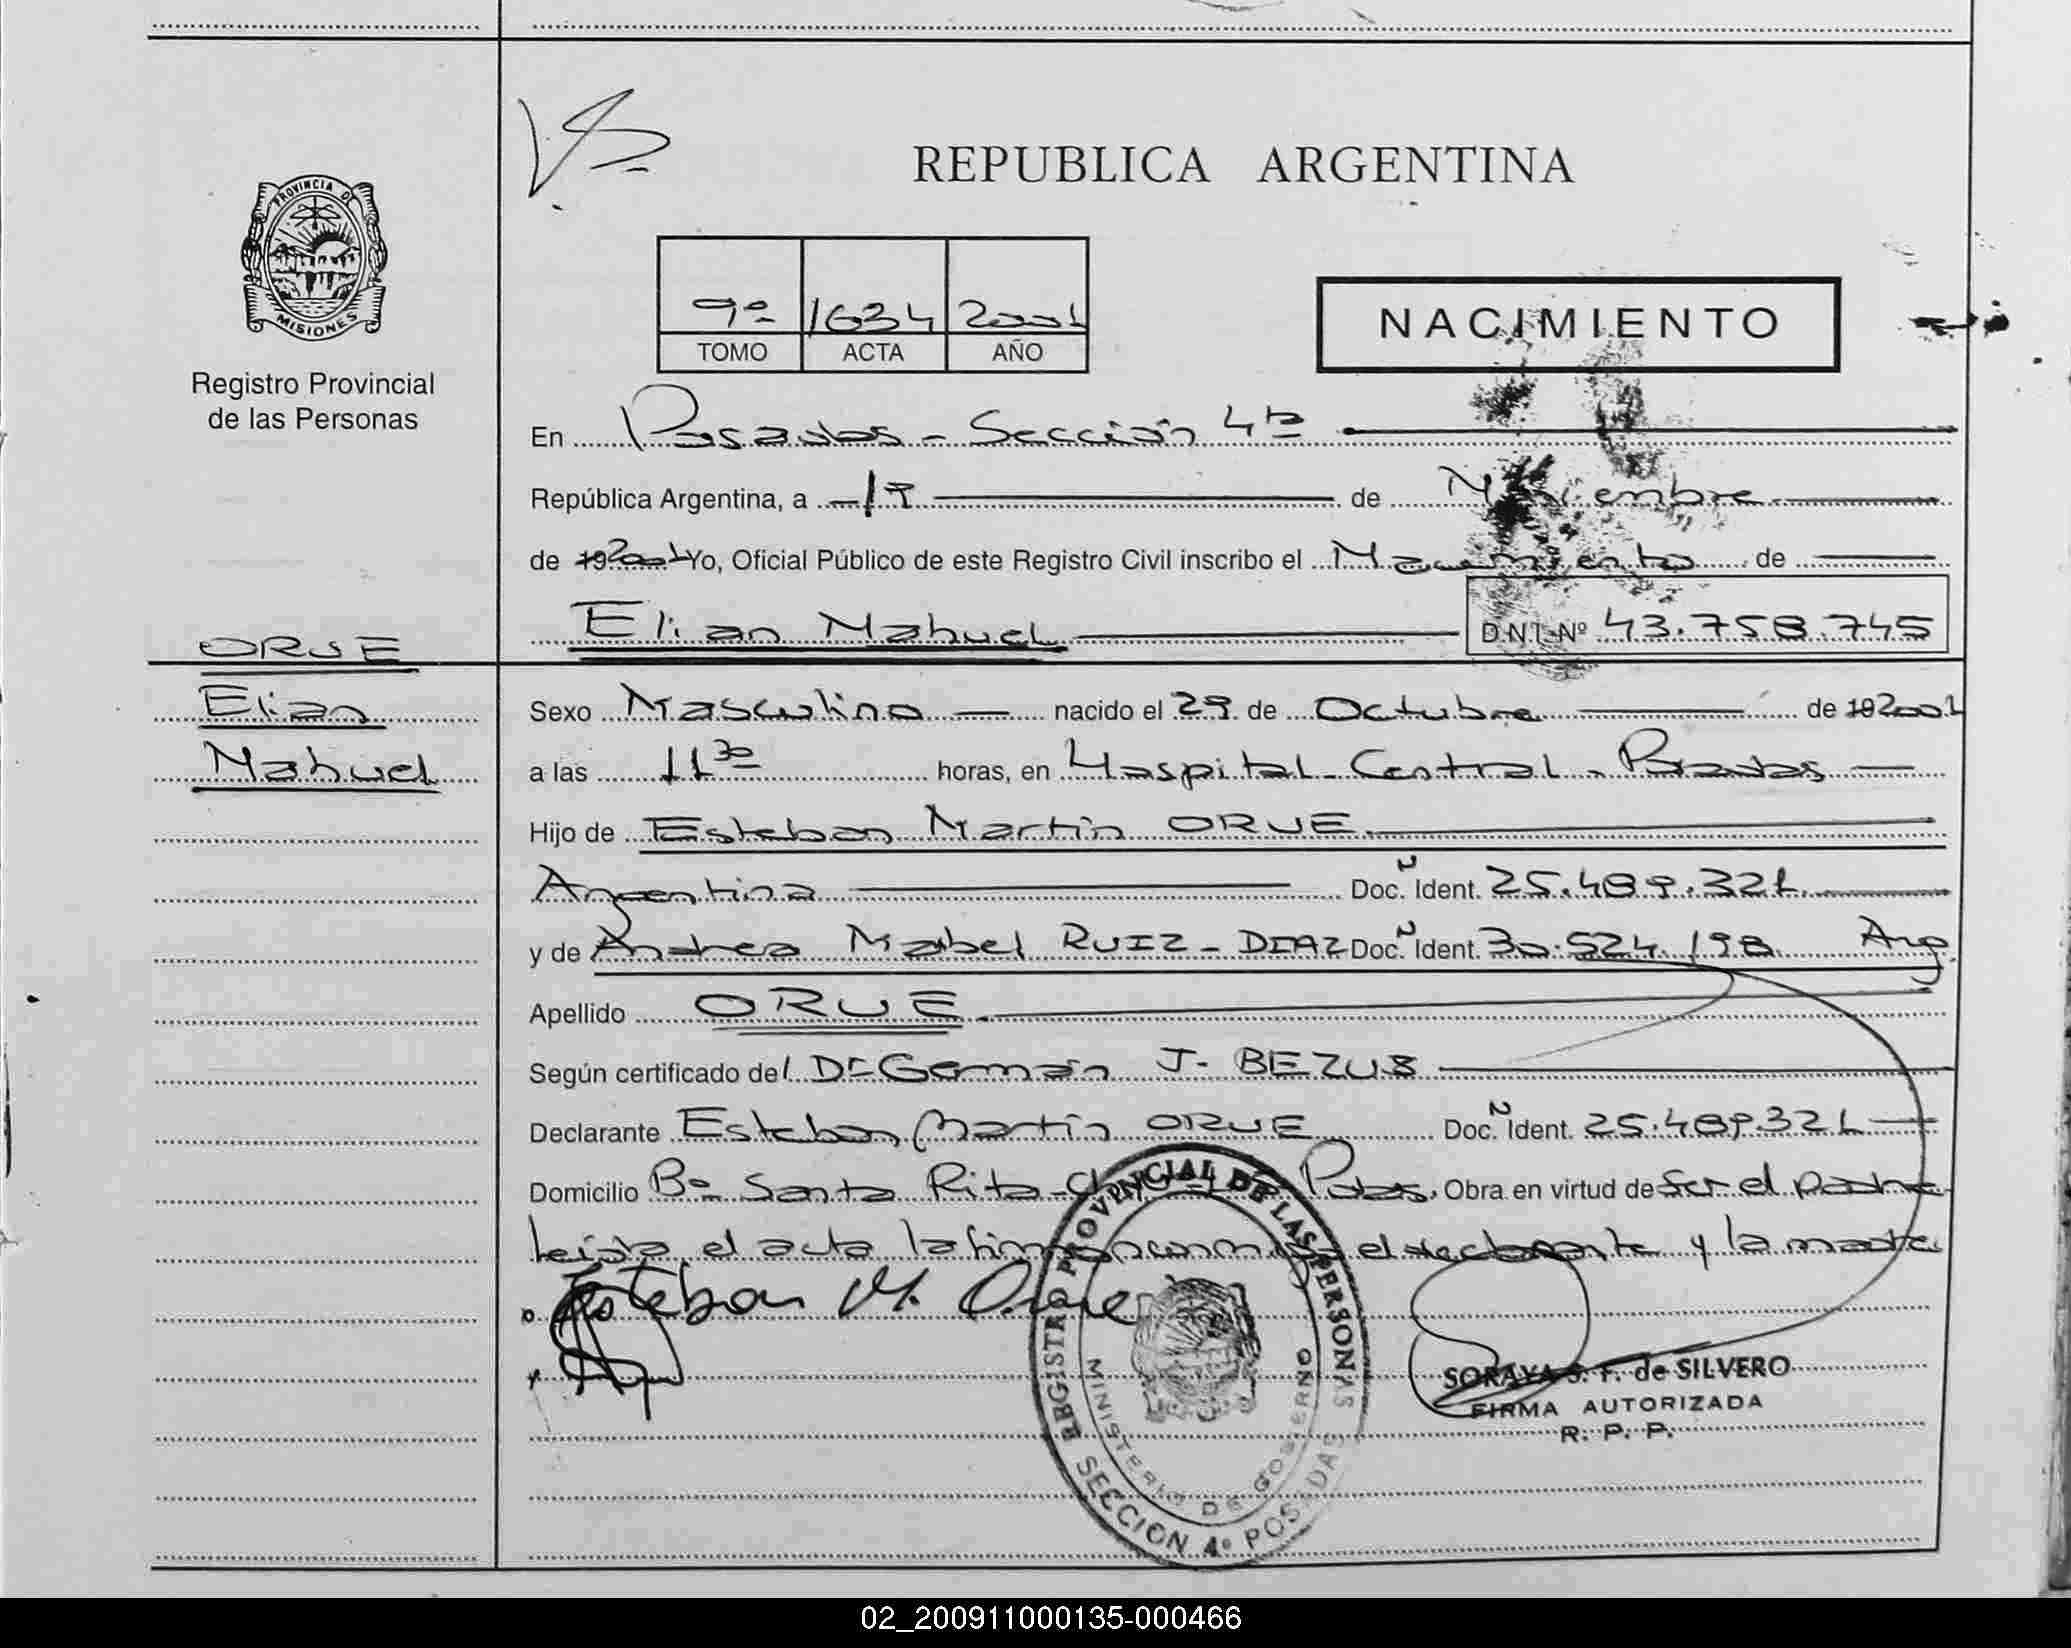 REPUBLICA ARGENTINA
PROVINCIA DE
MISIONES
Registro Provincial
de las Personas
9º 1634 2001
TOMO ACTA AÑO
NACIMIENTO
En Posadas - Sección 4ta
República Argentina, a -19 de Noviembre
de 19 2001 Yo, Oficial Público de este Registro Civil inscribo el Nacimiento de
Elian Nahuel D.N.I. Nº 43.758.745
ORUE
Elian
Nahuel
Sexo Masculino nacido el 29 de Octubre de 19 2001
a las 11 30 horas, en Hospital Central - Posadas
Hijo de Esteban Martín ORUE
Argentina Doc. Ident. 25.489.321
y de Andrea Mabel RUIZ - DIAZ Doc. Ident. 30.524.198 Arg.
Apellido ORUE
Según certificado del Dr Germán J. BEZUS
Declarante Esteban Martín ORUE Doc. Ident. 25.489.321
Domicilio Bº Santa Rita Pdas. Obra en virtud de Ser el padre
Leída el acta la firman conmigo el declarante y la madre
Esteban M. Orue
REGISTRO PROVINCIAL DE LAS PERSONAS
MINISTERIO DE GOBIERNO
SECCION 4º POSADAS
SORAYA S. F. de SILVERO
FIRMA AUTORIZADA
R. P. P.
02_200911000135-000466